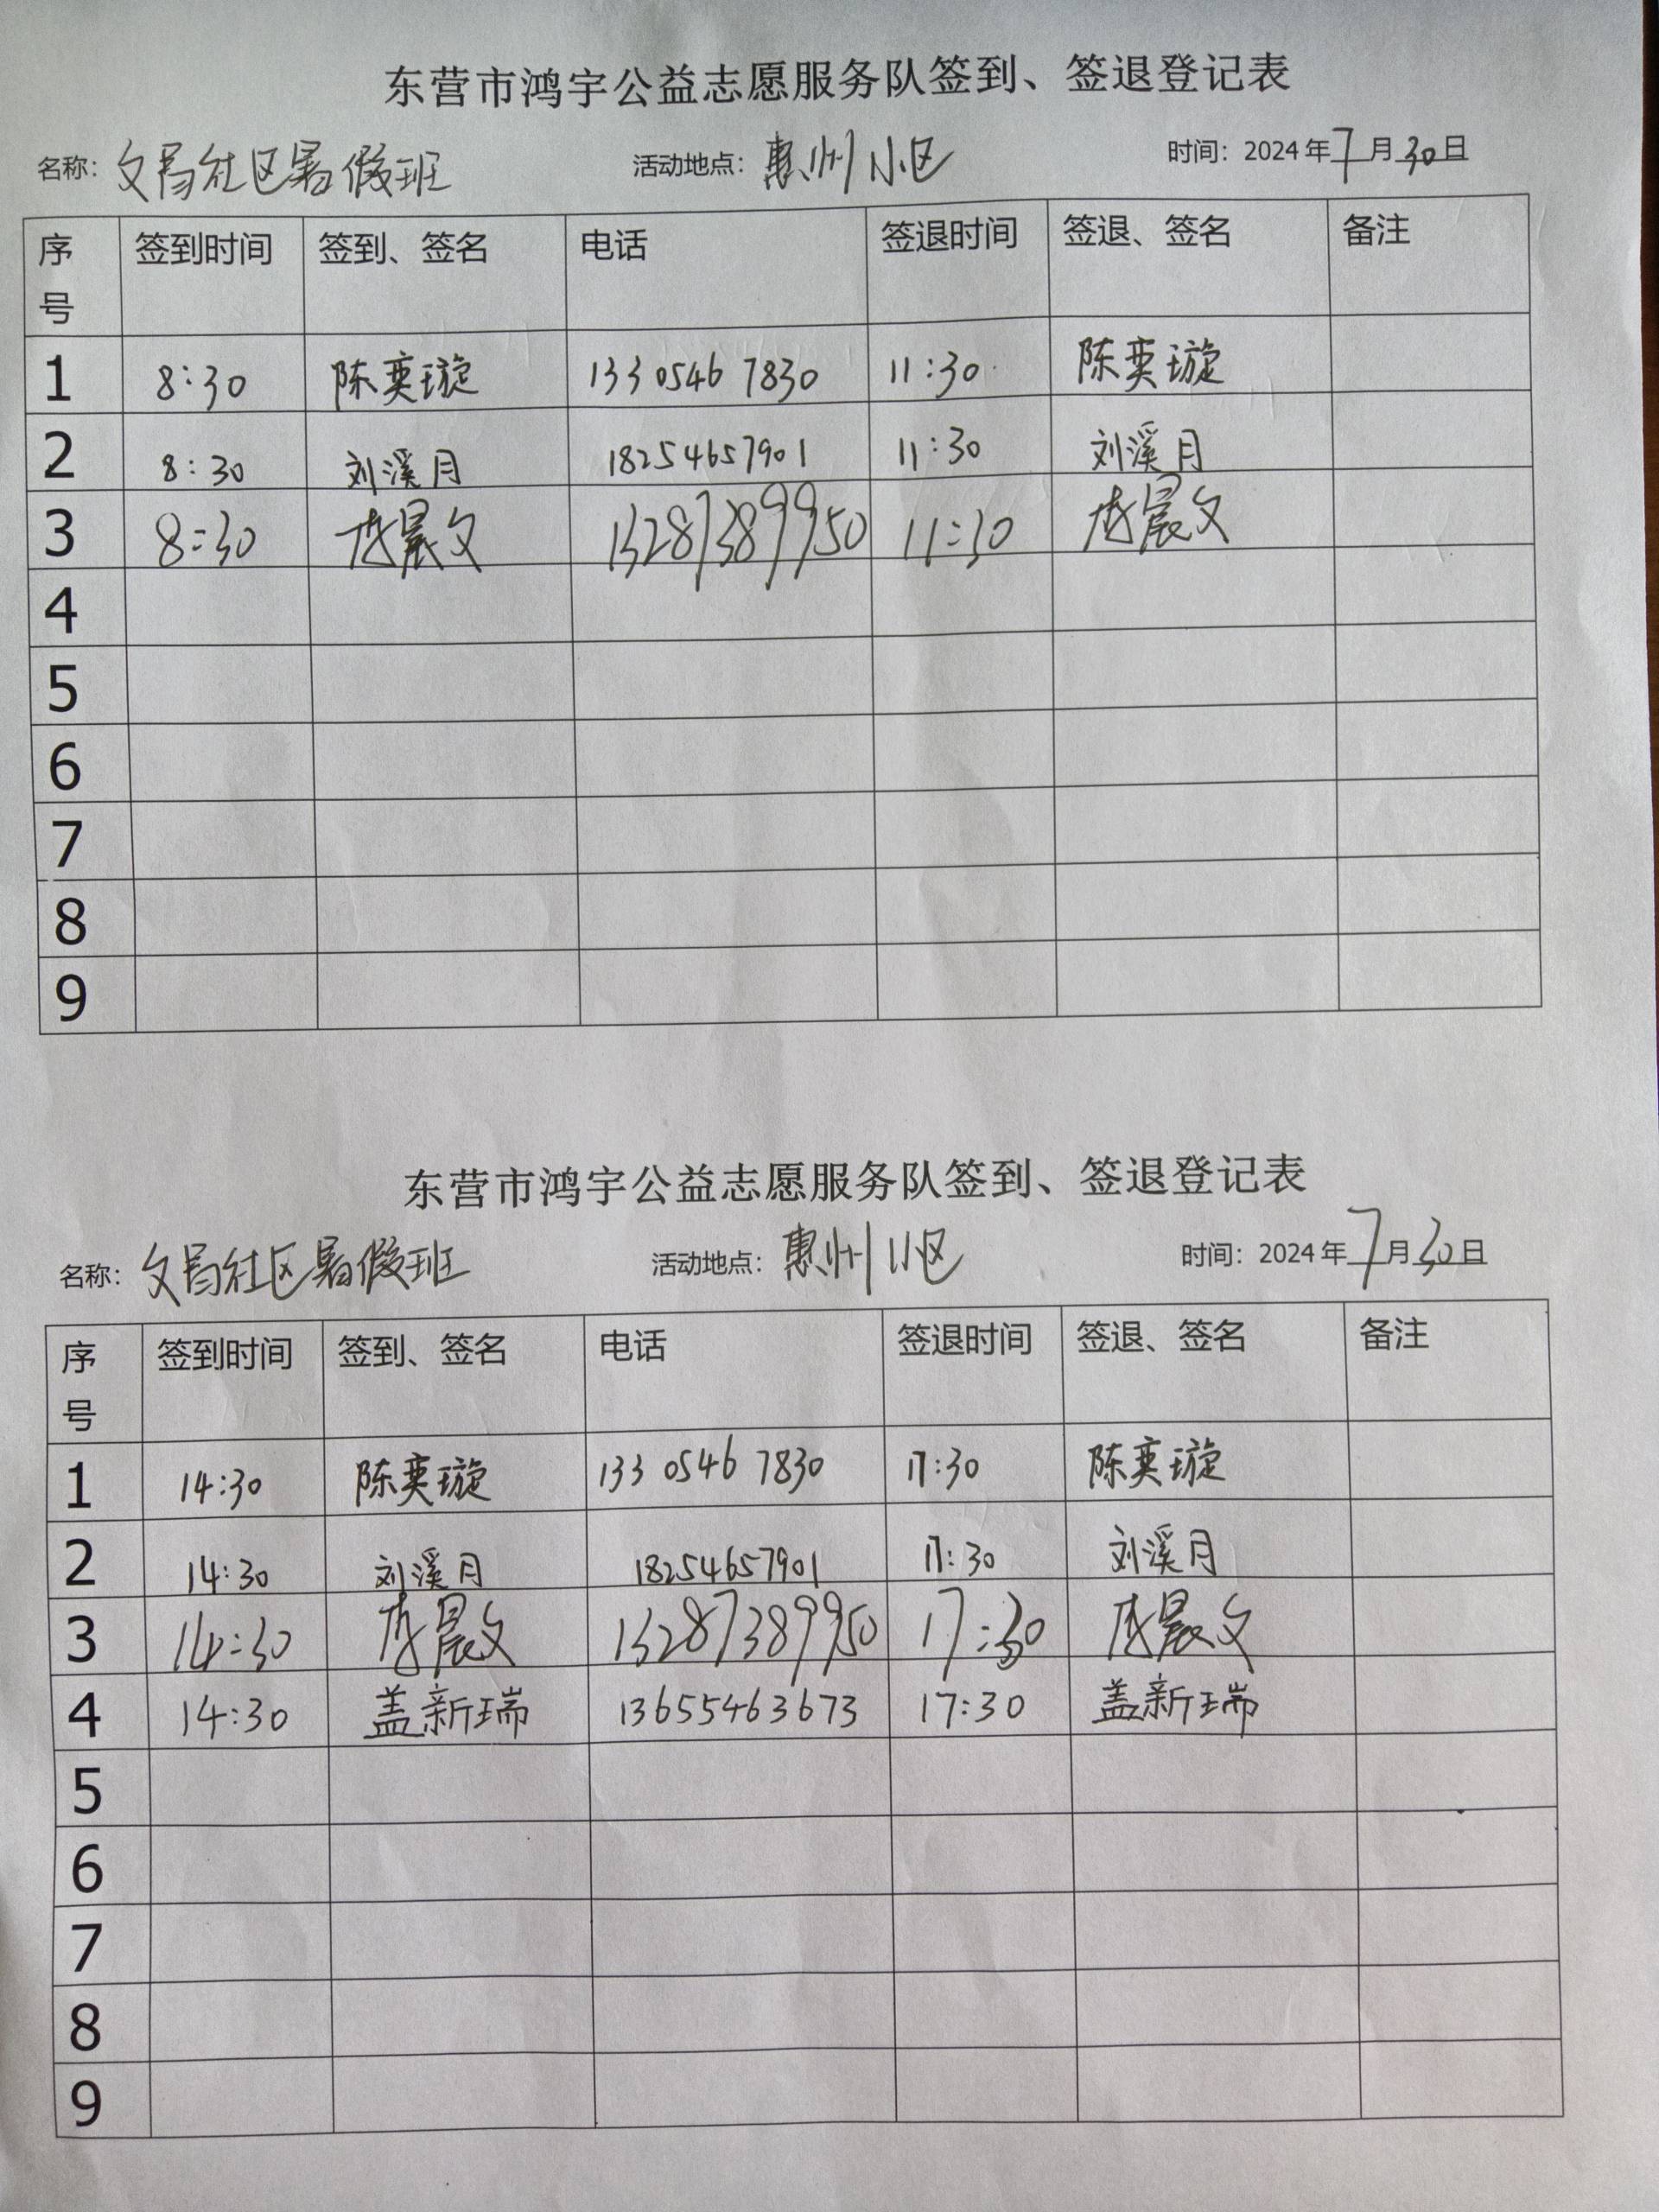 东营市鸿宇公益志愿服务队签到、签退登记表
名称：文昌社区暑假班 活动地点：惠州小区 时间：2024年7月30日
序号 签到时间 签到、签名 电话 签退时间 签退、签名 备注
1 8:30 陈奕璇 133 0546 7830 11:30 陈奕璇
2 8:30 刘溪月 18254657901 11:30 刘溪月
3 8:30 李晨文 13287389950 11:30 李晨文
4
5
6
7
8
9
东营市鸿宇公益志愿服务队签到、签退登记表
名称：文昌社区暑假班 活动地点：惠州小区 时间：2024年7月30日
序号 签到时间 签到、签名 电话 签退时间 签退、签名 备注
1 14:30 陈奕璇 133 0546 7830 17:30 陈奕璇
2 14:30 刘溪月 18254657901 17:30 刘溪月
3 14:30 李晨文 13287389950 17:30 李晨文
4 14:30 盖新瑞 13655463673 17:30 盖新瑞
5
6
7
8
9